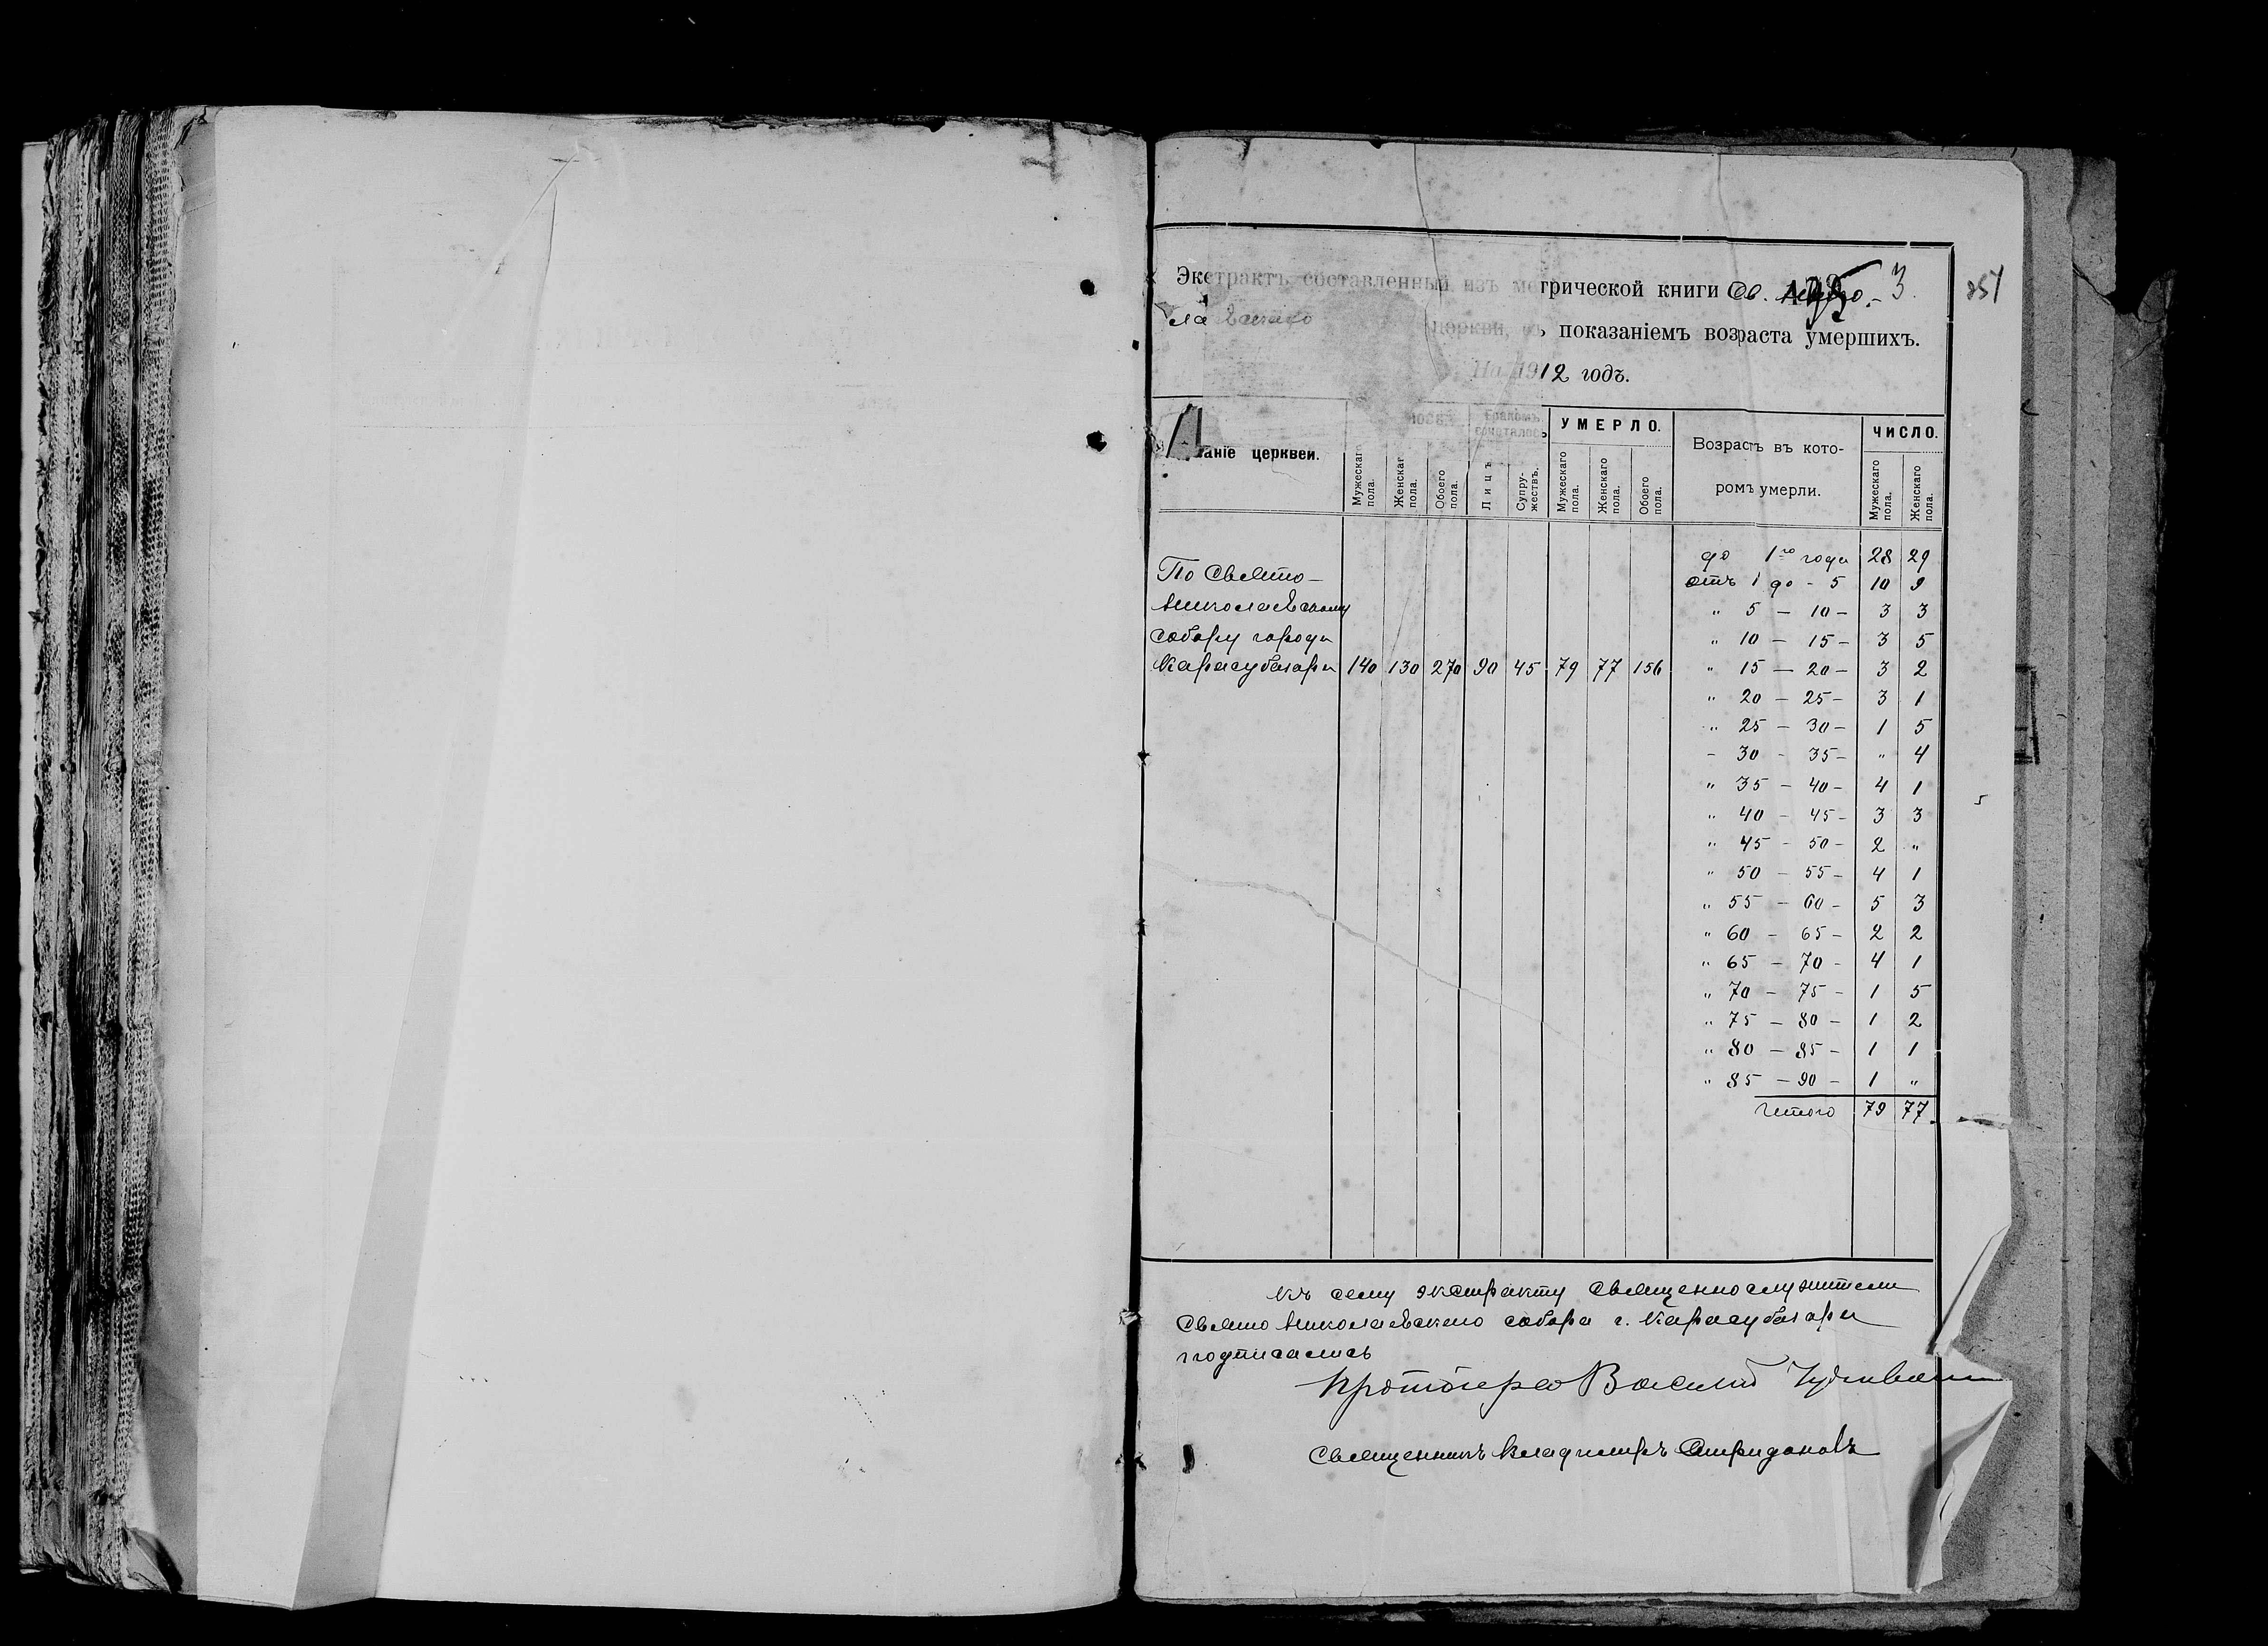 Экстрактъ, составленный изъ метрической книги Св. Нико-
лаевскаго церкви, съ показаніемъ возраста умершихъ.
На 1912 годъ.
351
3
аніе церквей.
Мужескаго пола.
Женскаго пола.
Обоего пола.
Бракомъ сочеталось
Лицъ
Супружествъ.
УМЕРЛО.
Мужескаго пола.
Женскаго пола.
Обоего пола.
Возрастъ въ кото-
ромъ умерли.
ЧИСЛО.
Мужескаго пола.
Женскаго пола.
По Свято-
Николаевскому
собору города
Карасубазара 140 130 270 90 45 79 77 156
до 1го года 28 29
отъ 1 до - 5 10 9
" 5 - 10 - 3 3
" 10 - 15 - 3 5
" 15 - 20 - 3 2
" 20 - 25 - 3 1
" 25 - 30 - 1 5
- 30 - 35 - " 4
" 35 - 40 - 4 1
" 40 - 45 - 3 3
" 45 - 50 - 2 "
" 50 - 55 - 4 1
" 55 - 60 - 5 3
" 60 - 65 - 2 2
" 65 - 70 - 4 1
" 70 - 75 - 1 5
" 75 - 80 - 1 2
" 80 - 85 - 1 1
" 85 - 90 - 1 "
Итого 79 77
Къ сему экстракту священнослужители
Свято Николаевскаго собора г. Карасубазара
подписались
Протоіерей Василій
Священникъ Владимиръ Спиридоновъ